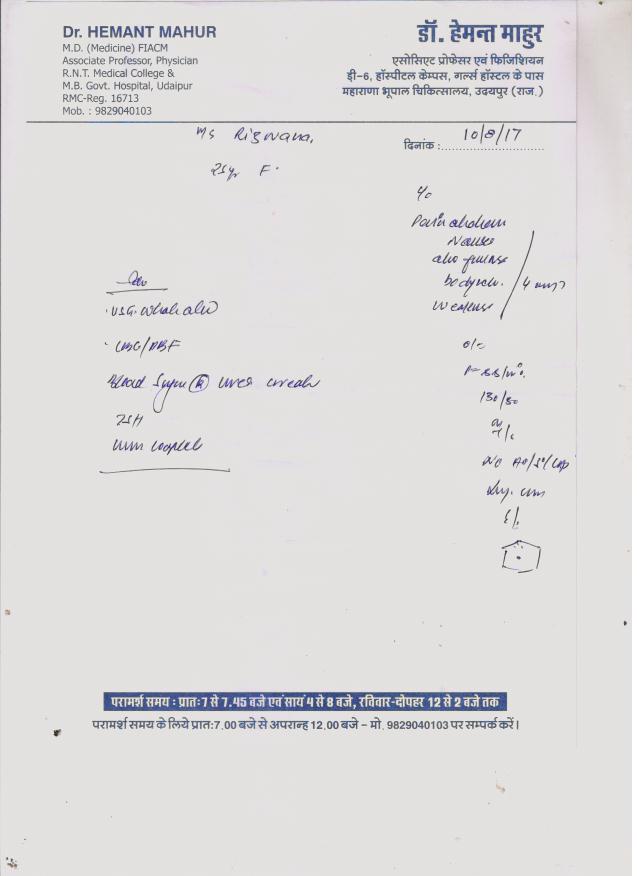 Dr. HEMANT MAHUR
M.D. (Medicine) FIACM
Associate Professor, Physician
R.N.T. Medical College &
M.B. Govt. Hospital, Udaipur
RMC-Reg. 16713
Mob. : 9829040103
डॉ. हेमन्त माहुर
एसोसिएट प्रोफेसर एवं फिजिशियन
डी-6, हॉस्पीटल केम्पस, गर्ल्स हॉस्टल के पास
महाराणा भूपाल चिकित्सालय, उदयपुर (राज.)
Ms Rizwana,
दिनांक : 10/8/17
25yr F.
c/o
Pain abdomen
Nausea
4
USG. Whole abd
CBC/PBF
Blood Sugar (R) urea
TSH
Urine complete
o/e
P= 88/m
130/80
परामर्श समय : प्रातः 7 से 7.45 बजे एवं सायं 4 से 8 बजे, रविवार-दोपहर 12 से 2 बजे तक
परामर्श समय के लिये प्रातः 7.00 बजे से अपरान्ह 12.00 बजे - मो. 9829040103 पर सम्पर्क करें।